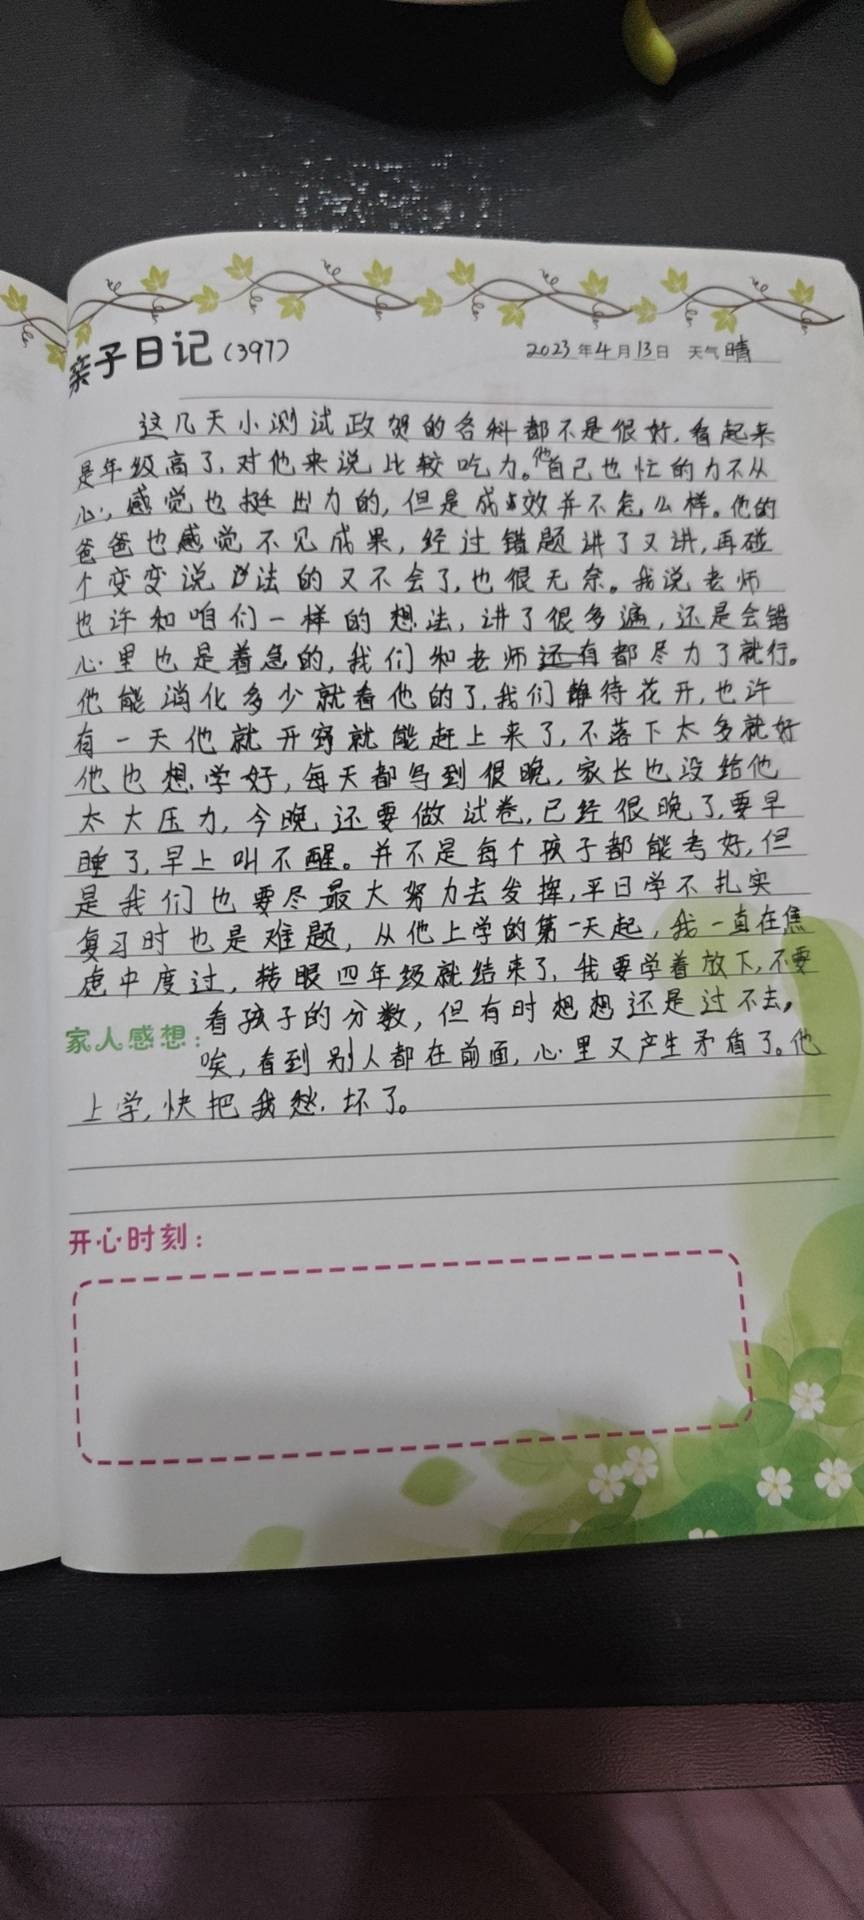 亲子日记(397)
2023年4月13日 天气晴
这几天小测试政贺的各科都不是很好,看起来
是年级高了,对他来说比较吃力。他自己也忙的力不从
心,感觉也挺出力的,但是成效并不怎么样。他的
爸爸也感觉不见成果,经过错题讲了又讲,再碰
个变变说法的又不会了,也很无奈。我说老师
也许和咱们一样的想法,讲了很多遍,还是会错
心里也是着急的,我们和老师还有都尽力了就行。
他能消化多少就看他的了,我们静待花开,也许
有一天他就开窍就能赶上来了,不落下太多就好
他也想学好,每天都写到很晚,家长也没给他
太大压力,今晚还要做试卷,已经很晚了,要早
睡了,早上叫不醒。并不是每个孩子都能考好,但
是我们也要尽最大努力去发挥,平日学不扎实
复习时也是难题,从他上学的第一天起,我一直在焦
虑中度过,转眼四年级就结束了,我要学着放下,不要
看孩子的分数,但有时想想还是过不去,
家人感想:
唉,看到别人都在前面,心里又产生矛盾了。他
上学,快把我愁坏了。
开心时刻: